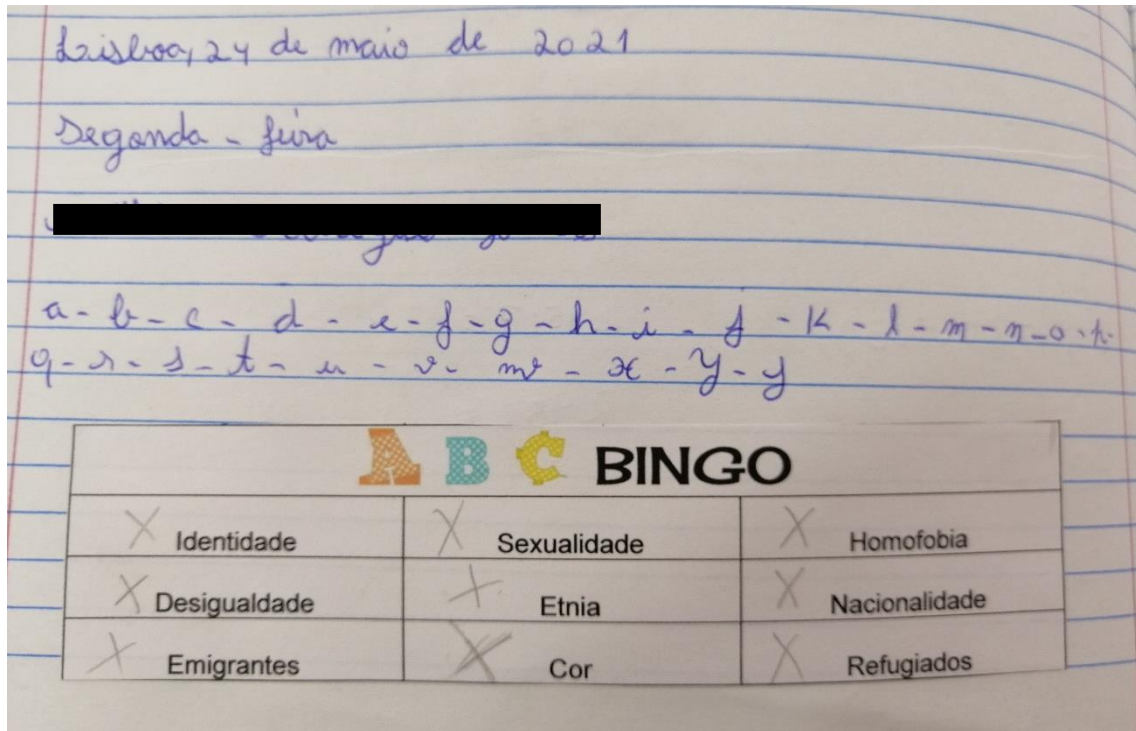 Lisboa, 24 de maio de 2021
Segonda - feira
a - b - c - d - e - f - g - h - i - j - K - l - m - n - o - p -
q - r - s - t - u - v - w - x - y - y
A B C BINGO
X Identidade X Sexualidade X Homofobia
X Desigualdade X Etnia X Nacionalidade
X Emigrantes X Cor X Refugiados